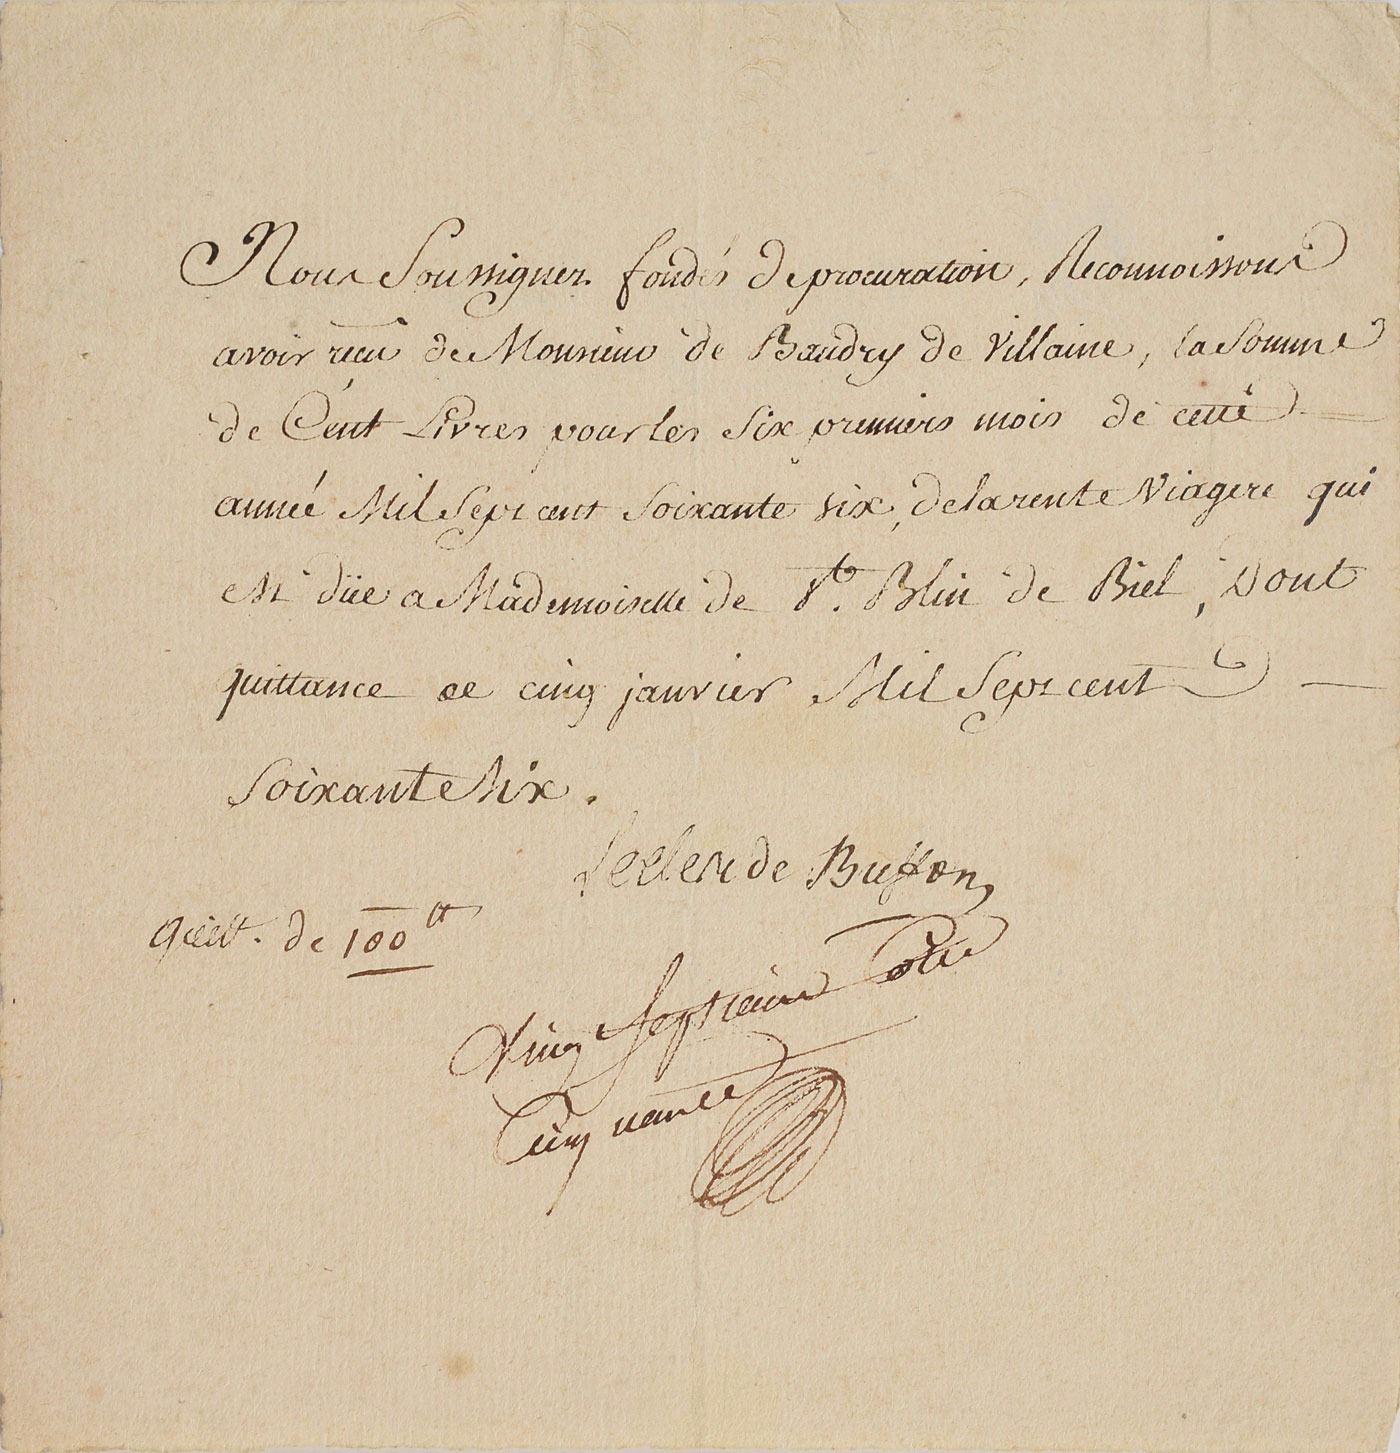 Nous Soussignez fondés de procuration, Reconnoissons
avoir reçu de Monsieur de Baudry de Villaine, la Somme
de Cent Livres pour les Six premiers mois de cette
année Mil Sept cent Soixante six, de la rente Viagere qui
est düe a Mademoiselle de St. Blin de Biel, Dont
quittance ce cinq janvier Mil Sept cent
Soixante Six.
Leclerc de Buffon
Quitt. de 100 tt
Vingt Septieme Cotte
Cinquante